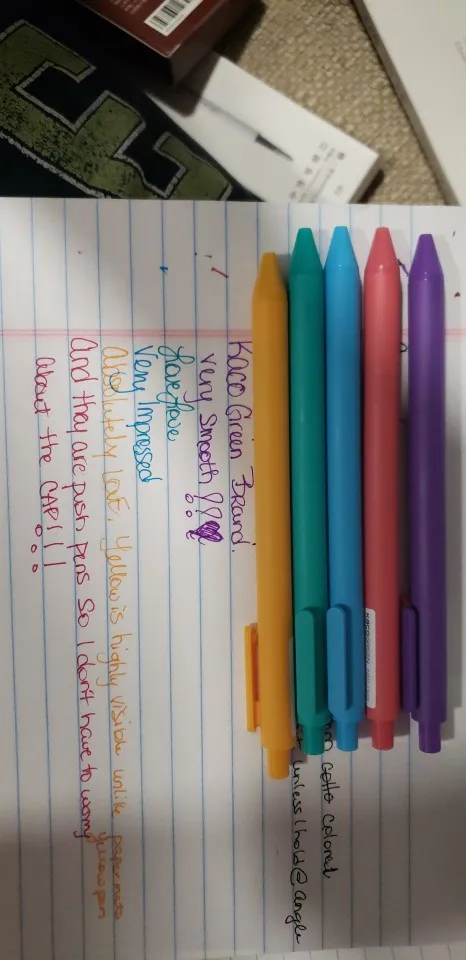 Gotta colored
unless I hold @ angle
Kaco Green Brand.
very smooth!!
Love love
Very Impressed
Absolutely Love, Yellow is highly visible unlike papermate
yellow pen
And they are push pens so I don't have to worry
about the CAP!!!